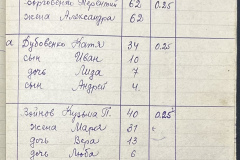 Терентий 62 0.25
жена Александра 62
а Дубовенко Катя 34 0.25
сын Иван 10
дочь Лида 7
сын Андрей 4
Зайков Кузьма П. 40 0.25
жена Мария 31
дочь Вера 13
дочь Люба 6